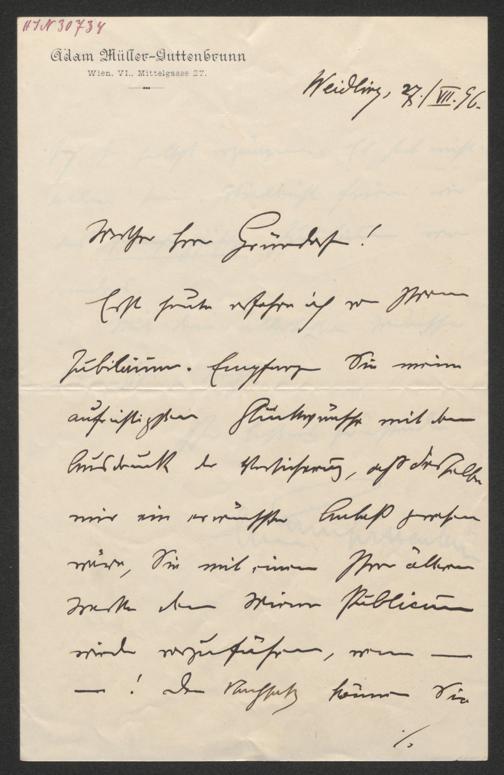 HIN 30734
Adam Müller-Guttenbrunn
Wien, VI., Mittelgasse 27.
Weidling, 27./VII. 96.
Werther Herr Gründorf!
Erst heute erfahre ich von Ihrem
Jubiläum. Empfangen Sie meine
aufrichtigsten Glückwünsche mit dem
Ausdruck der Versicherung, daß dasselbe
mir ein erwünschter Anlaß gewesen
wäre, Sie mit einem Ihrer älteren
Werke dem Wiener Publicum
wieder vorzuführen, wenn —
— ! Den Nachsatz können Sie
./.